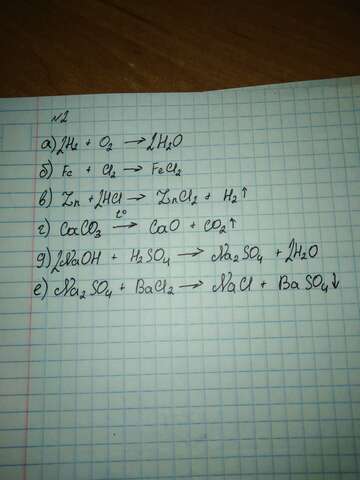 №2
а) 2H₂ + O₂ → 2H₂O
б) Fe + Cl₂ → FeCl₂
в) Zn + 2HCl → ZnCl₂ + H₂↑
г) CaCO₃ t°→ CaO + CO₂↑
д) 2NaOH + H₂SO₄ → Na₂SO₄ + 2H₂O
е) Na₂SO₄ + BaCl₂ → NaCl + BaSO₄↓